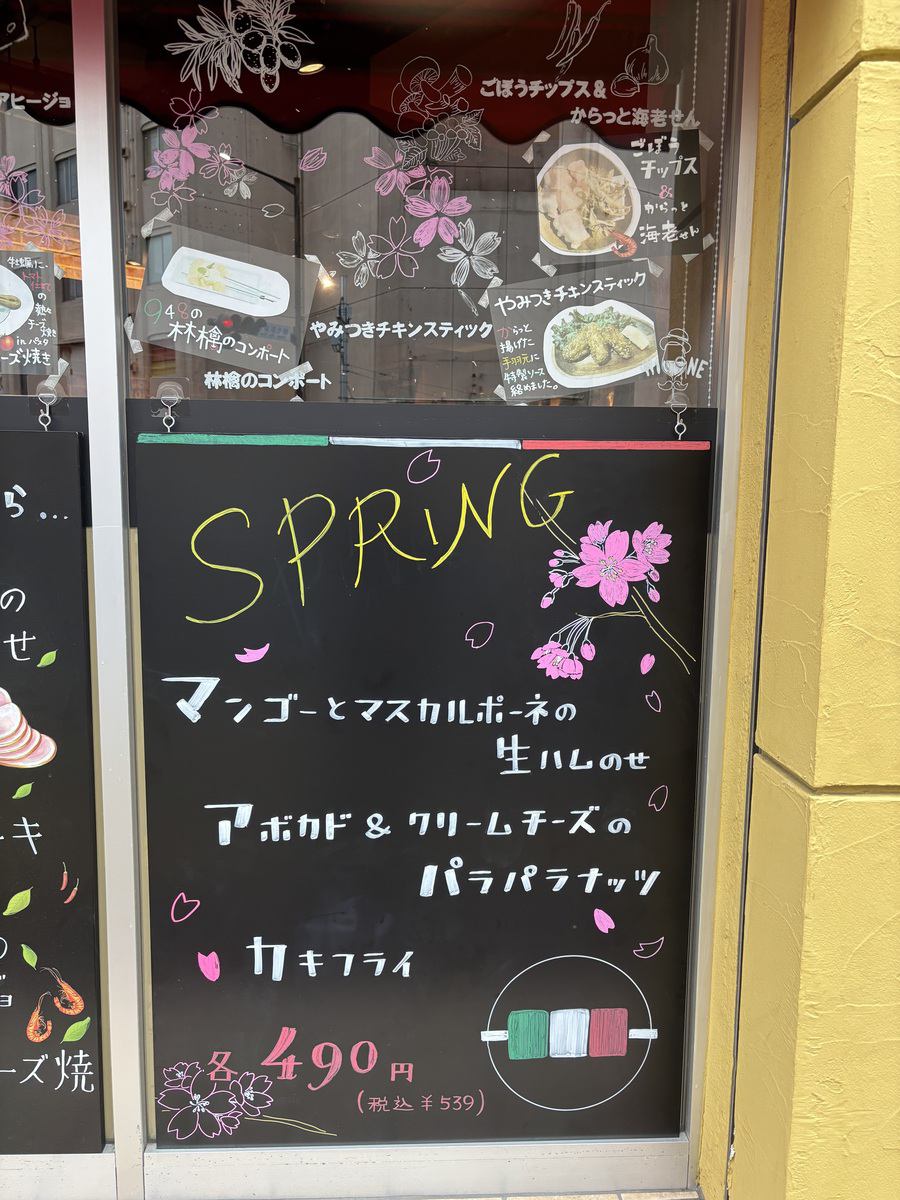 アヒージョ
ごぼうチップス&
からっと海老せん
ごぼう
チップス
&
からっと
海老せん
牡蠣に、
トマト
仕立て
の
熱々
チーズ
焼き
in パスタ
ーズ焼き
948の
林檎のコンポート
林檎のコンポート
やみつきチキンスティック
やみつきチキンスティック
からっと
揚げた
手羽元に
特製ソース
絡めました。
ら...
の
せ
ーキ
ジョ
ーズ焼
SPRING
マンゴーとマスカルポーネの
生ハムのせ
アボカド & クリームチーズの
パラパラナッツ
カキフライ
各 490円
(税込¥539)